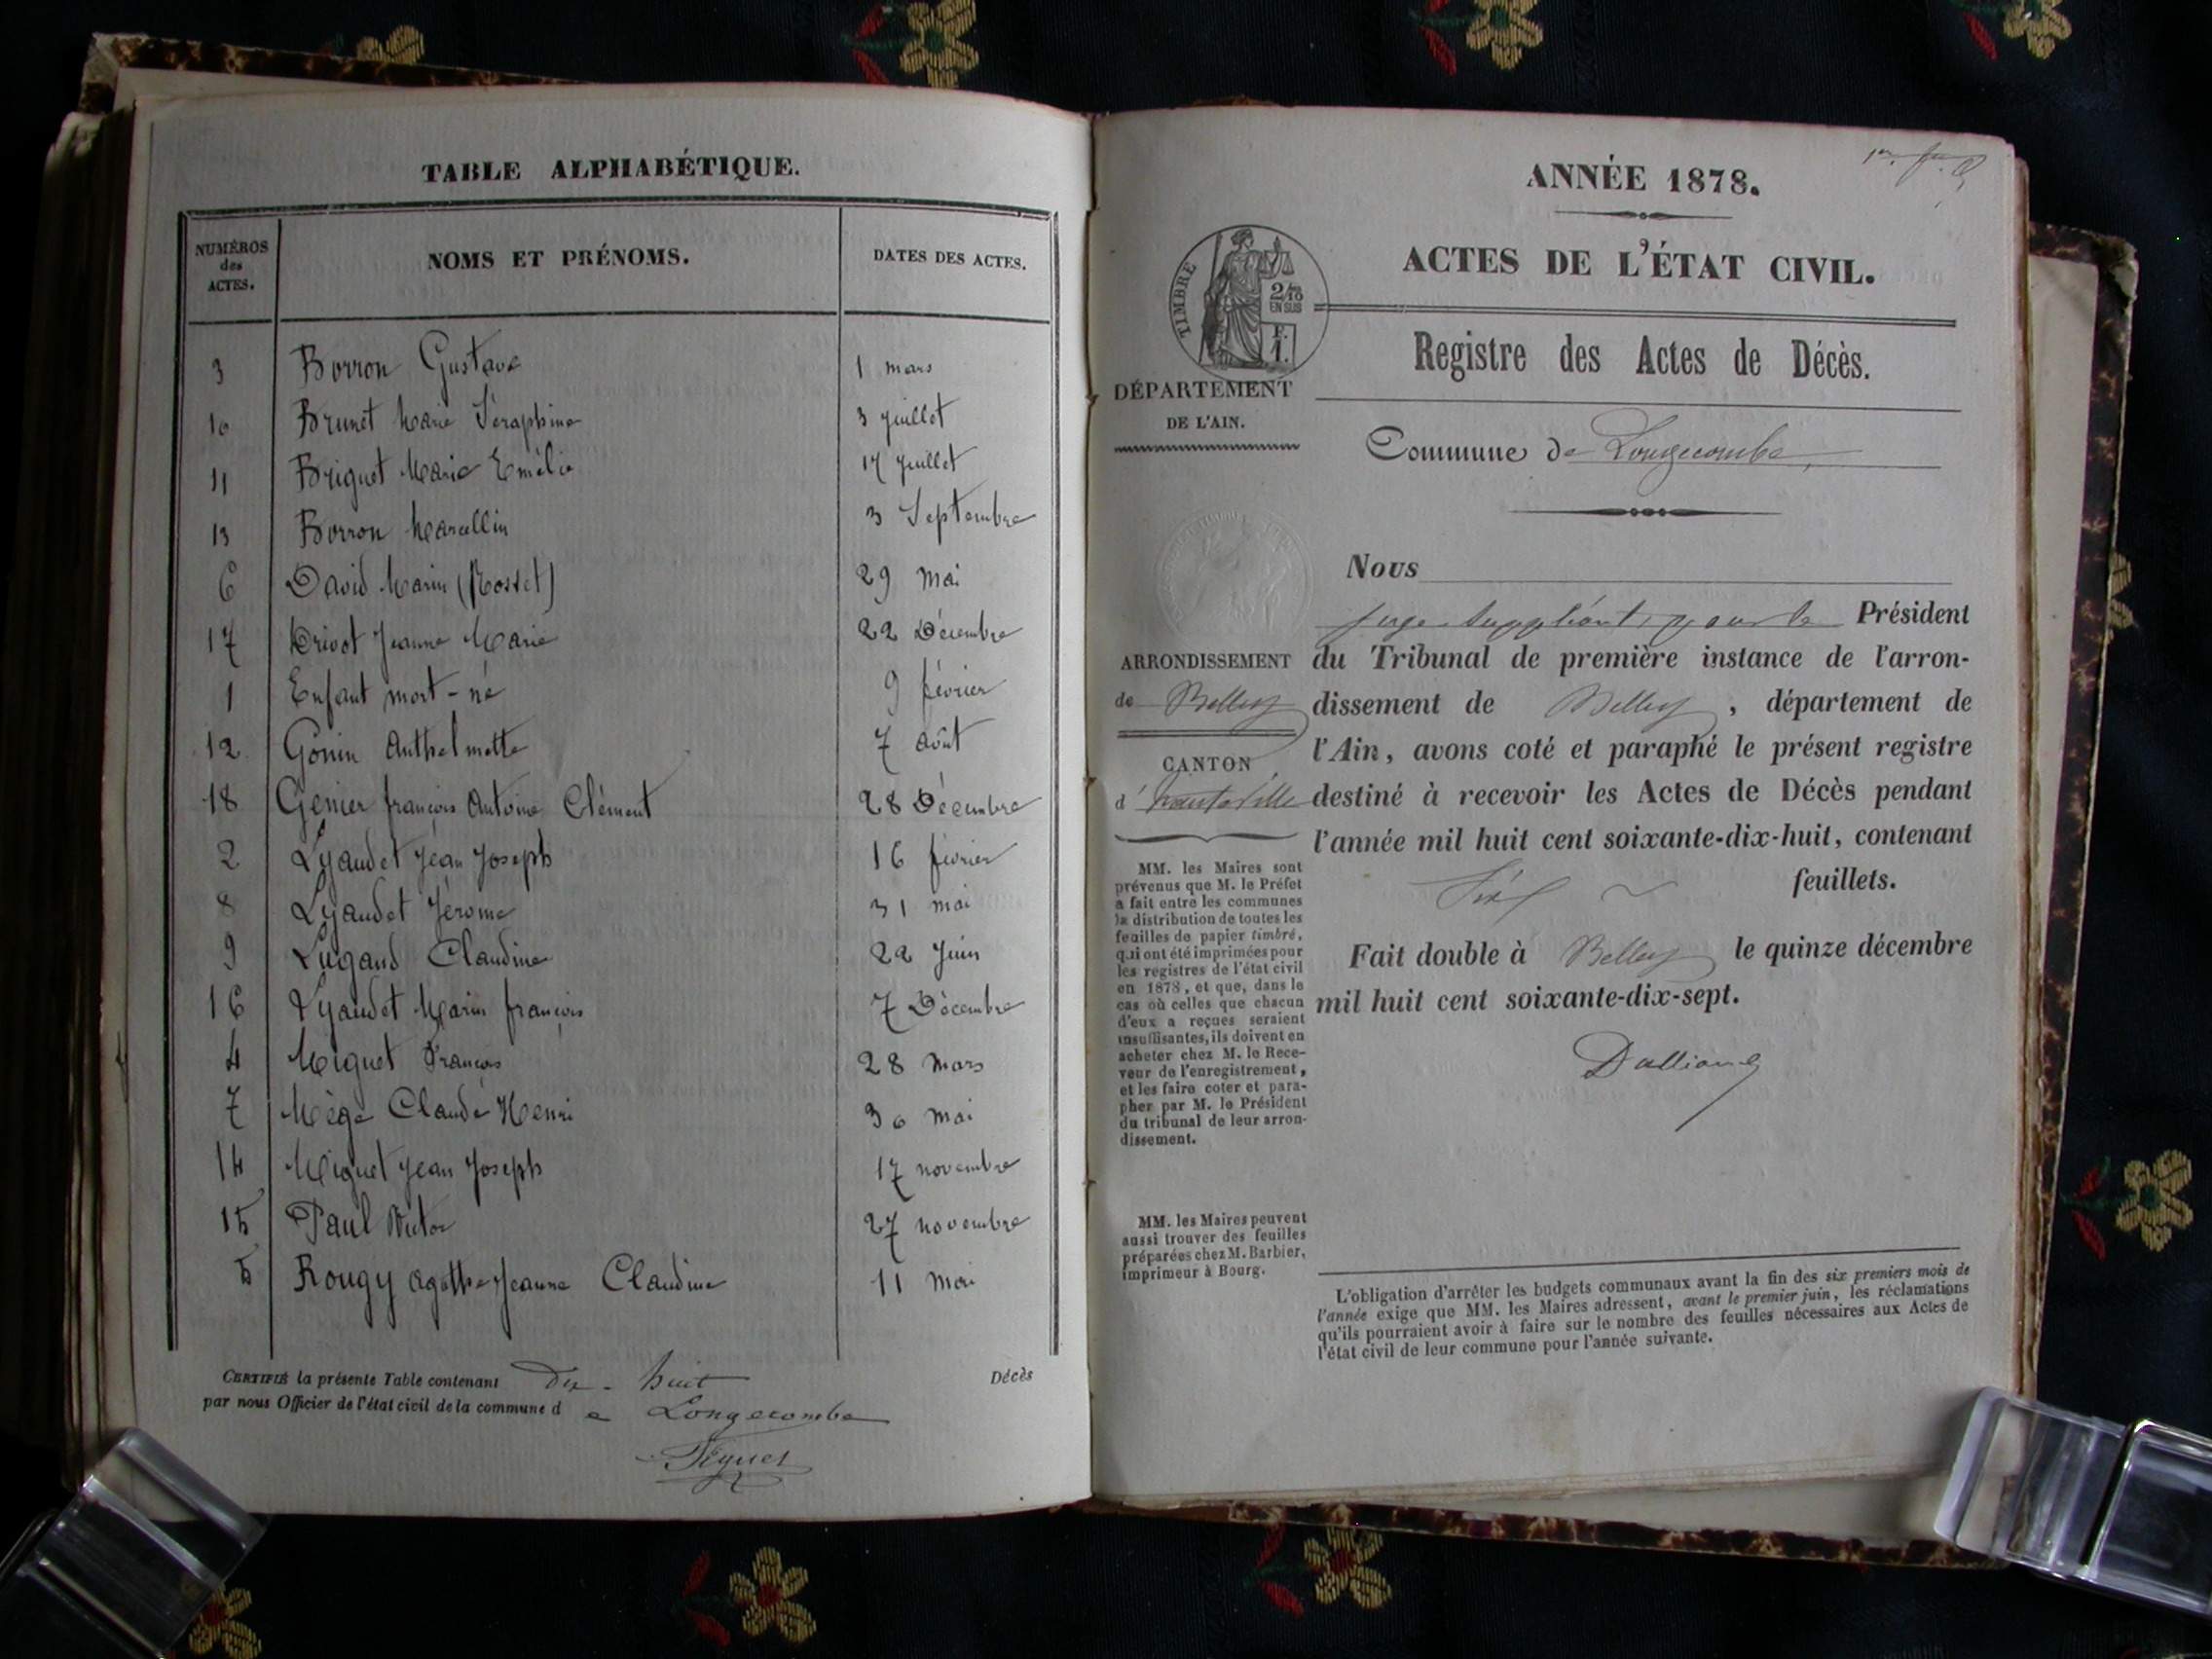 TABLE ALPHABÉTIQUE.
NUMÉROS des ACTES. NOMS ET PRÉNOMS. DATES DES ACTES.
3 Borron Gustave 1 mars
10 Brunet Marie Séraphine 3 Juillet
11 Briguet Marie Emélie 17 Juillet
13 Borron Marcellin 3 Septembre
6 David Marin (Rosset) 29 mai
17 Drivot Jeanne Marie 22 Décembre
1 Enfant mort-né 9 février
12 Gonin Anthelmette 7 août
18 Genier françois Antoine Clément 28 Décembre
2 Lyaudet Jean Joseph 16 février
8 Lyaudet Jérome 31 mai
9 Lugand Claudine 22 Juin
16 Lyaudet Marin françois 7 Décembre
4 Miguet François 28 mars
7 Mège Claude Henri 30 mai
14 Miguet Jean Joseph 17 novembre
15 Paul Victor 27 novembre
5 Rougy agathe Jeanne Claudine 11 Mai
CERTIFIÉ la présente Table contenant dix-huit Décès
par nous Officier de l'état civil de la commune d e Longecombe
ANNÉE 1878.
ACTES DE L'ÉTAT CIVIL.
TIMBRE
2/10
EN SUS
F.
1.
Registre des Actes de Décès.
DÉPARTEMENT
DE L'AIN.
Commune de Longecombe
Nous
juge suppléant, pour le Président
du Tribunal de première instance de l'arron-
dissement de Belley, département de
l'Ain, avons coté et paraphé le présent registre
destiné à recevoir les Actes de Décès pendant
l'année mil huit cent soixante-dix-huit, contenant
Six feuillets.
Fait double à Belley le quinze décembre
mil huit cent soixante-dix-sept.
ARRONDISSEMENT
de Belley
CANTON
d' hauteville
MM. les Maires sont
prévenus que M. le Préfet
a fait entre les communes
la distribution de toutes les
feuilles de papier timbré,
qui ont été imprimées pour
les registres de l'état civil
en 1878, et que, dans le
cas où celles que chacun
d'eux a reçues seraient
insuffisantes, ils doivent en
acheter chez M. le Rece-
veur de l'enregistrement,
et les faire coter et para-
pher par M. le Président
du tribunal de leur arron-
dissement.
MM. les Maires peuvent
aussi trouver des feuilles
préparées chez M. Barbier,
imprimeur à Bourg.
L'obligation d'arrêter les budgets communaux avant la fin des six premiers mois de
l'année exige que MM. les Maires adressent, avant le premier juin, les réclamations
qu'ils pourraient avoir à faire sur le nombre des feuilles nécessaires aux Actes de
l'état civil de leur commune pour l'année suivante.